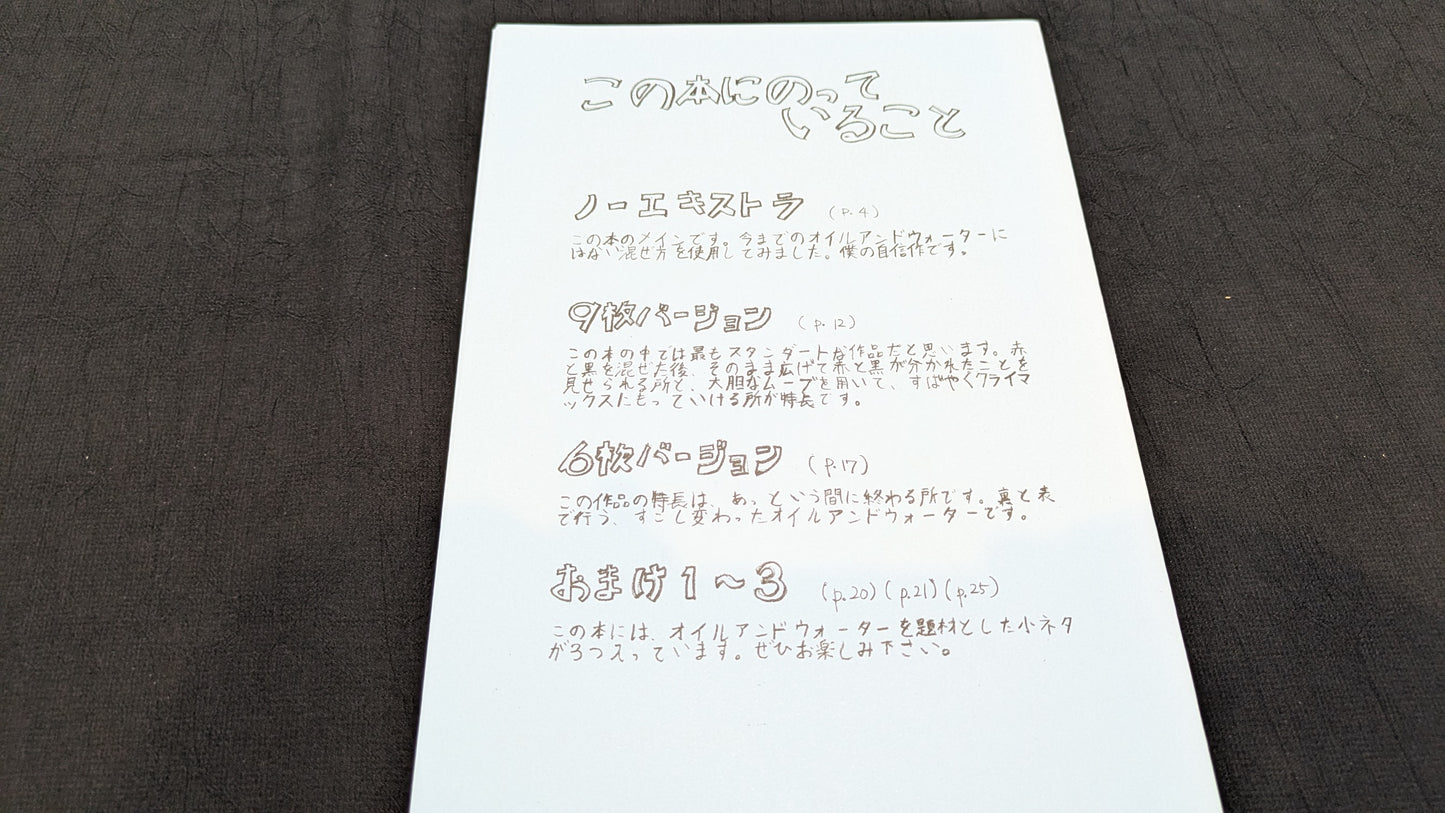 この本にのって
いること
ノーエキストラ (p.4)
この本のメインです。今までのオイルアンドウォーターに
はない混ぜ方を使用してみました。僕の自信作です。
9枚バージョン (p.12)
この本の中では最もスタンダートな作品だと思います。赤
と黒を混ぜた後、そのまま広げて赤と黒が分かれたことを
見せられる所と、大胆なムーブを用いて、すばやくクライマ
ックスにもっていける所が特長です。
6枚バージョン (p.17)
この作品の特長は、あっという間に終わる所です。裏と表
で行う、すこし変わったオイルアンドウォーターです。
おまけ1～3 (p.20)(p.21)(p.25)
この本には、オイルアンドウォーターを題材とした小ネタ
が3つ入っています。ぜひお楽しみ下さい。